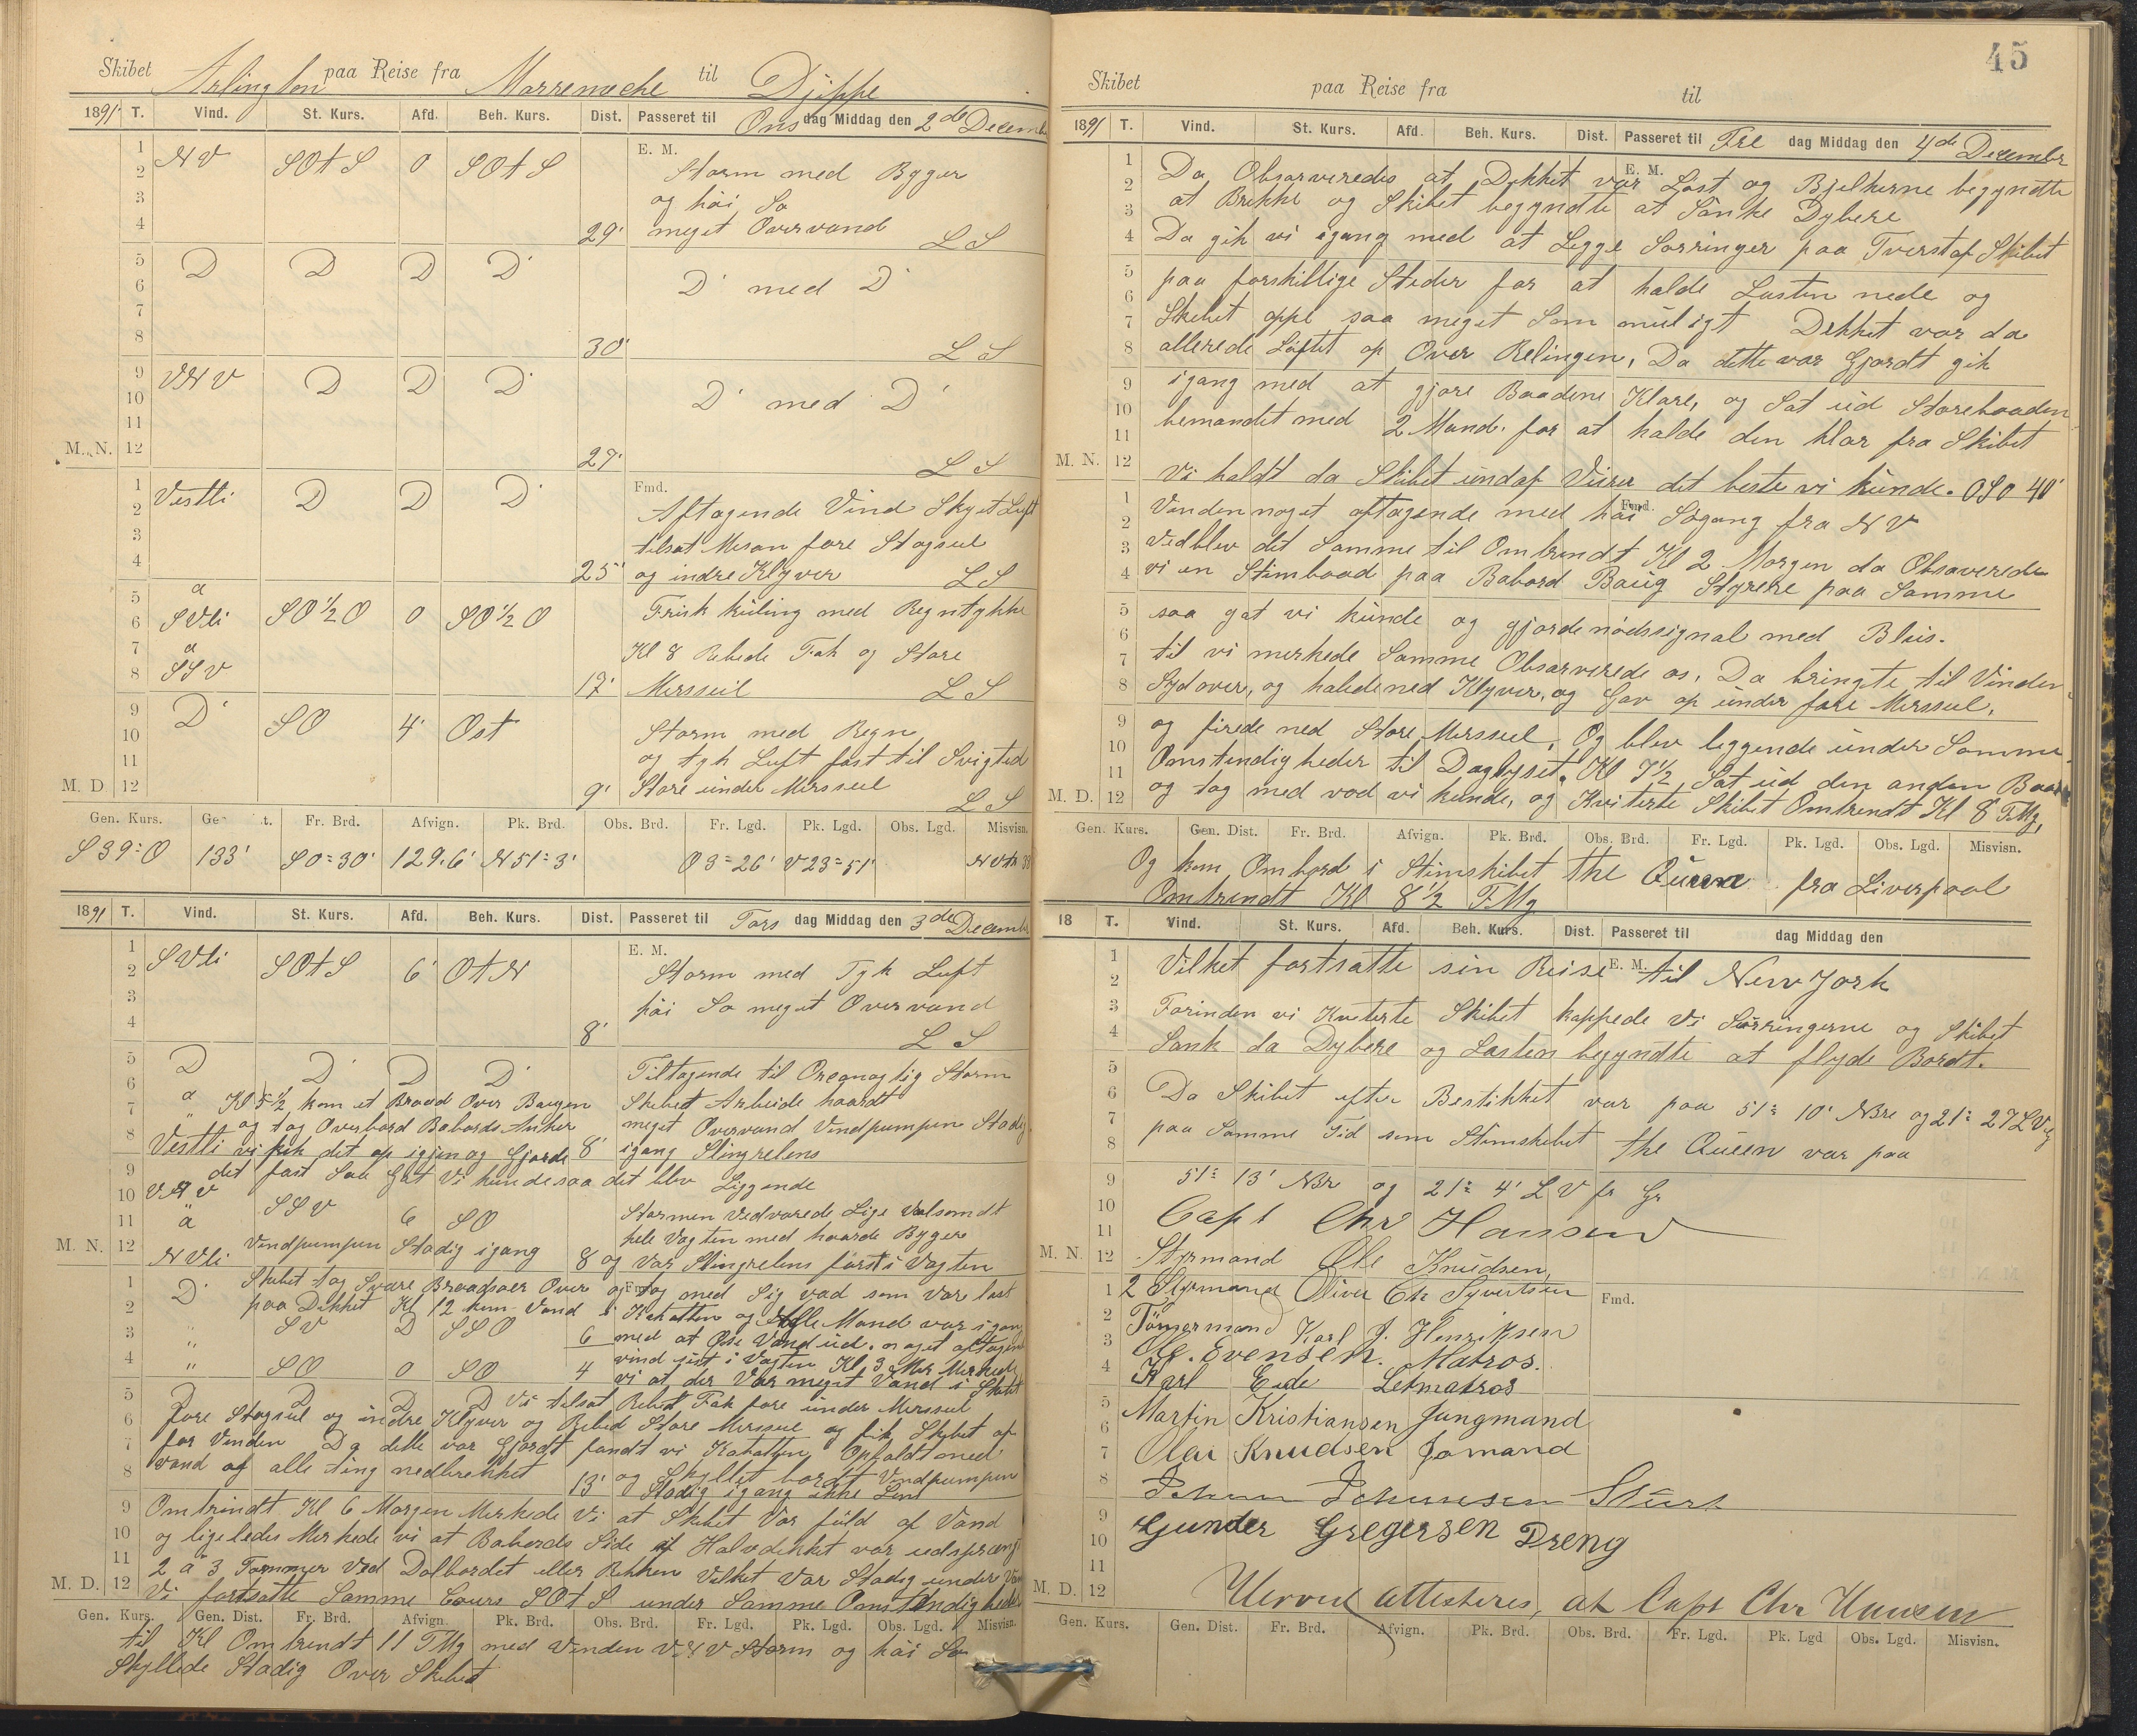 Skibet Arlington paa Reise fra Marremeche til Djippe
1891 T. Vind. St. Kurs. Afd. Beh. Kurs. Dist. Passeret til Ons dag Middag den 2de Decemb
E. M.
1 2 NV SOtS 0 SOtS Storm med Byger
3 og höi Sö
4 29' meget Overvand LS
5 6 D D D D' D' med D'
7
8 30' LS
9 10 VNV D D D' D' med D'
11
M. N. 12 27' LS
Fmd.
1 2 Vestli D D D' Aftagende Vind Skyet Luft
3 tilsat Mesan fore Stagseil
4 25' og indre Klyver LS
5 a
6 SVli SO½O 0 SO½O Frisk kuling med Regntykke
7 a Kl 8 Rebede Fok og Store
8 SSV 17' Mersseil LS
9 10 D' SO 4' Ost Storm med Regn
11 og tyk Luft fast til Svigted
M. D. 12 9' Store under Mersseil LS
Gen. Kurs. Ge t. Fr. Brd. Afvign. Pk. Brd. Obs. Brd. Fr. Lgd. Pk. Lgd. Obs. Lgd. Misvisn.
S39=O 133' S0=30' 129.6' N51=3' O3=26' V23=51'
1891 T. Vind. St. Kurs. Afd. Beh. Kurs. Dist. Passeret til Tors dag Middag den 3de Decemb
E. M.
1 2 SVli SOtS 6' OtN Storm med Tyk Luft
3 höi Sö meget Overvand
4 8' LS
5 D D' D D' Tiltagende til Oregnagtig Storm
6 a Kl 5½ kom et Braad Over Baugen Skibet Arbeide haardt
7 " og tog Overbord Babords Anker meget Overvand Vindpumpen Stadig
8 Vestli vi fik det op igjen og Gjorde 8' igang Slingrelens
9 det fast Saa Gat Vi kunde saa det blev Liggende
10 VNV SSV 6 SO Stormen Vedvarede Lige Volsomdt
11 a hele Vagten med haarde Bygere
M. N. 12 NVli Vindpumpen Stadig igang 8 og Var Slingrelens först i Vagten
1 D' Skibet tog Svare Braadsöer Over og tog med Sig vad som var löst
Fmd.
2 paa Dekket Kl 12 kom Vand i Kahatten og Alle Mand var igang
3 " SV D SSO 6 med at Öse Vand ud. noget aftagen
4 " SO 0 SO 4 vind sist i Vagten Kl 3 Mer Merkede
vi at der Var meget Vand i Skibet
5 D D D D Vi tilsat Rebet Fok fore under Mersseil
6 fore Stagseil og indre Klyver og Rebed Store Mersseil og fik Skibet af
7 for Vinden Da dette var Gjordt fandt vi Kahatten Opfaldt med
8 vand og alle ting nedbrekket 13' og Skyllet bordt Vindpumpen
Stadig igang ikke Lens
9 Omtrindt Kl 6 Morgen Merkede Vi at Skibet Var füld af Vand
10 og ligeledes Merkede vi at Babords Side af Halvdekket var udsprængt
11 2 a 3 Tommer Ved Dolbordet eller Rekken Vilket Var Stadig under Van
M. D. 12 Vi fortsatte Samme Cours SOtS under Samme Omstendighede
Gen. Kurs. Gen. Dist. Fr. Brd. Afvign. Pk. Brd. Obs. Brd. Fr. Lgd. Pk. Lgd. Obs. Lgd. Misvisn.
til Kl Omtrindt 11 FMg med Vinden VNV Storm og höi Sö
Skyllede Stadig Over Skibet
45
Skibet paa Reise fra til
1891 T. Vind. St. Kurs. Afd. Beh. Kurs. Dist. Passeret til Fre dag Middag den 4de Decembr
E. M.
1 Da Obsarveredes at Dekket var Löst og Bjelkerne begyndte
2 at Brekke og Skibet begyndte at Sänke Dybere
3 4 Da gik vi igang med at Legge Sorringer paa Tverstaf Skibet
5 paa forskillige Steder for at holde Lasten nede og
6 7 Skibet oppe saa meget Som müligt Dekket var da
8 allerede Löftet op Over Relingen, Da dette var Gjordt gik
9 igang med at gjöre Baadene Klare, og Sat üd Storebaaden
10 11 bemandet med 2 Mand. for at holde den klar fra Skibet
M. N. 12 Vi holdt da Skibet undaf Viirer det beste vi kunde. OSO 40'
Fmd.
1 2 Vinden noget aftagende med höi Sögang fra NV
3 Vedblev det Samme til Omtrindt Kl 2 Morgen da Obsaverede
4 vi en Stimbaad paa Babord Baug Styrere paa Samme
5 saa gat vi kunde og gjorde nödssignal med Blüs.
6 7 til vi merkede Samme Obsarverede os, Da bringte til Vinden
8 Sydover, og halede ned Klyver, og Gav op under fore Mersseil,
9 og firede ned Store Mersseil, Og blev liggende under Samme
10 11 Omstendigheder til Daglyset. Kl 7½ Sat ud den anden Baad
M. D. 12 og tog med vad vi kunde, og Kviterte Skibet Omtrendt Kl 8 FMg,
Gen. Kurs. Gen. Dist. Fr. Brd. Afvign. Pk. Brd. Obs. Brd. Fr. Lgd. Pk. Lgd. Obs. Lgd. Misvisn.
Og kom Ombord i Stimskibet the Queen fra Liverpool
Omtrendt Kl 8½ FMg
18 T. Vind. St. Kurs. Afd. Beh. Kurs. Dist. Passeret til dag Middag den
E. M.
1 2 Vilket fortsatte sin Reise til New York
3 Forinden vi Kviterte Skibet kappede Vi Sörringerne og Skibet
4 5 Sank da Dybere og Lasten begyndte at flyde Bordt.
6 Da Skibet efter Bestikket var paa 51= 10' NBre og 21= 27 LV
7 8 paa Samme Tid som Stimskibet the Queen var paa
9 51= 13' NBr og 21= 4' LV fr Gr
10 11 Capt Chr Hansen
M. N. 12 Styrmand Ole Knudsen,
1 2 Styrmand Oliver Chr Syvertsen Fmd.
2 Tömermand Karl J. Henriksen
3 Ole. Evensen. Matros.
4 Karl Eide Letmatros
5 6 Martin Kristiansen Jungmand
7 Olai Knudsen Jomand
8 Johan Johansen Stürt
9 10 Gunder Gregersen Dreng
11
M. D. 12 Herved attesteres, at Capt Chr Hansen
Gen. Kurs. Gen. Dist. Fr. Brd. Afvign. Pk. Brd. Obs. Brd. Fr. Lgd. Pk. Lgd Obs. Lgd. Misvisn.